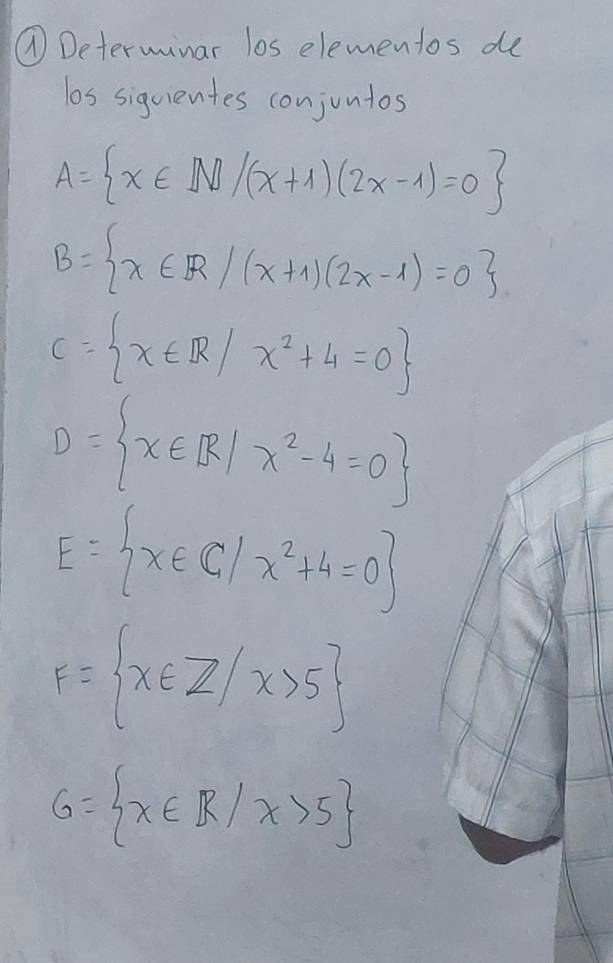 ① Determinar los elementos de
los siguientes conjuntos
A = {x ∈ ℕ /(x+1)(2x-1)=0}
B = {x ∈ ℝ /(x+1)(2x-1)=0}
C = {x ∈ ℝ / x²+4=0}
D = {x ∈ ℝ / x²-4=0}
E = {x ∈ ℂ / x²+4=0}
F = {x ∈ ℤ / x>5}
G = {x ∈ ℝ / x>5}